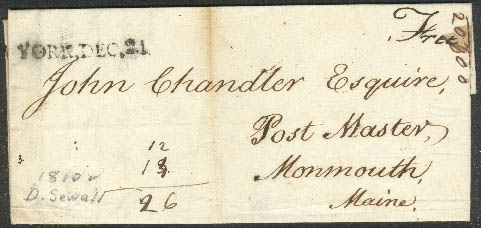 Free
YORK, DEC, 21
John Chandler Esquire,
Post Master,
Monmouth,
Maine.
12
26
D. Sewall